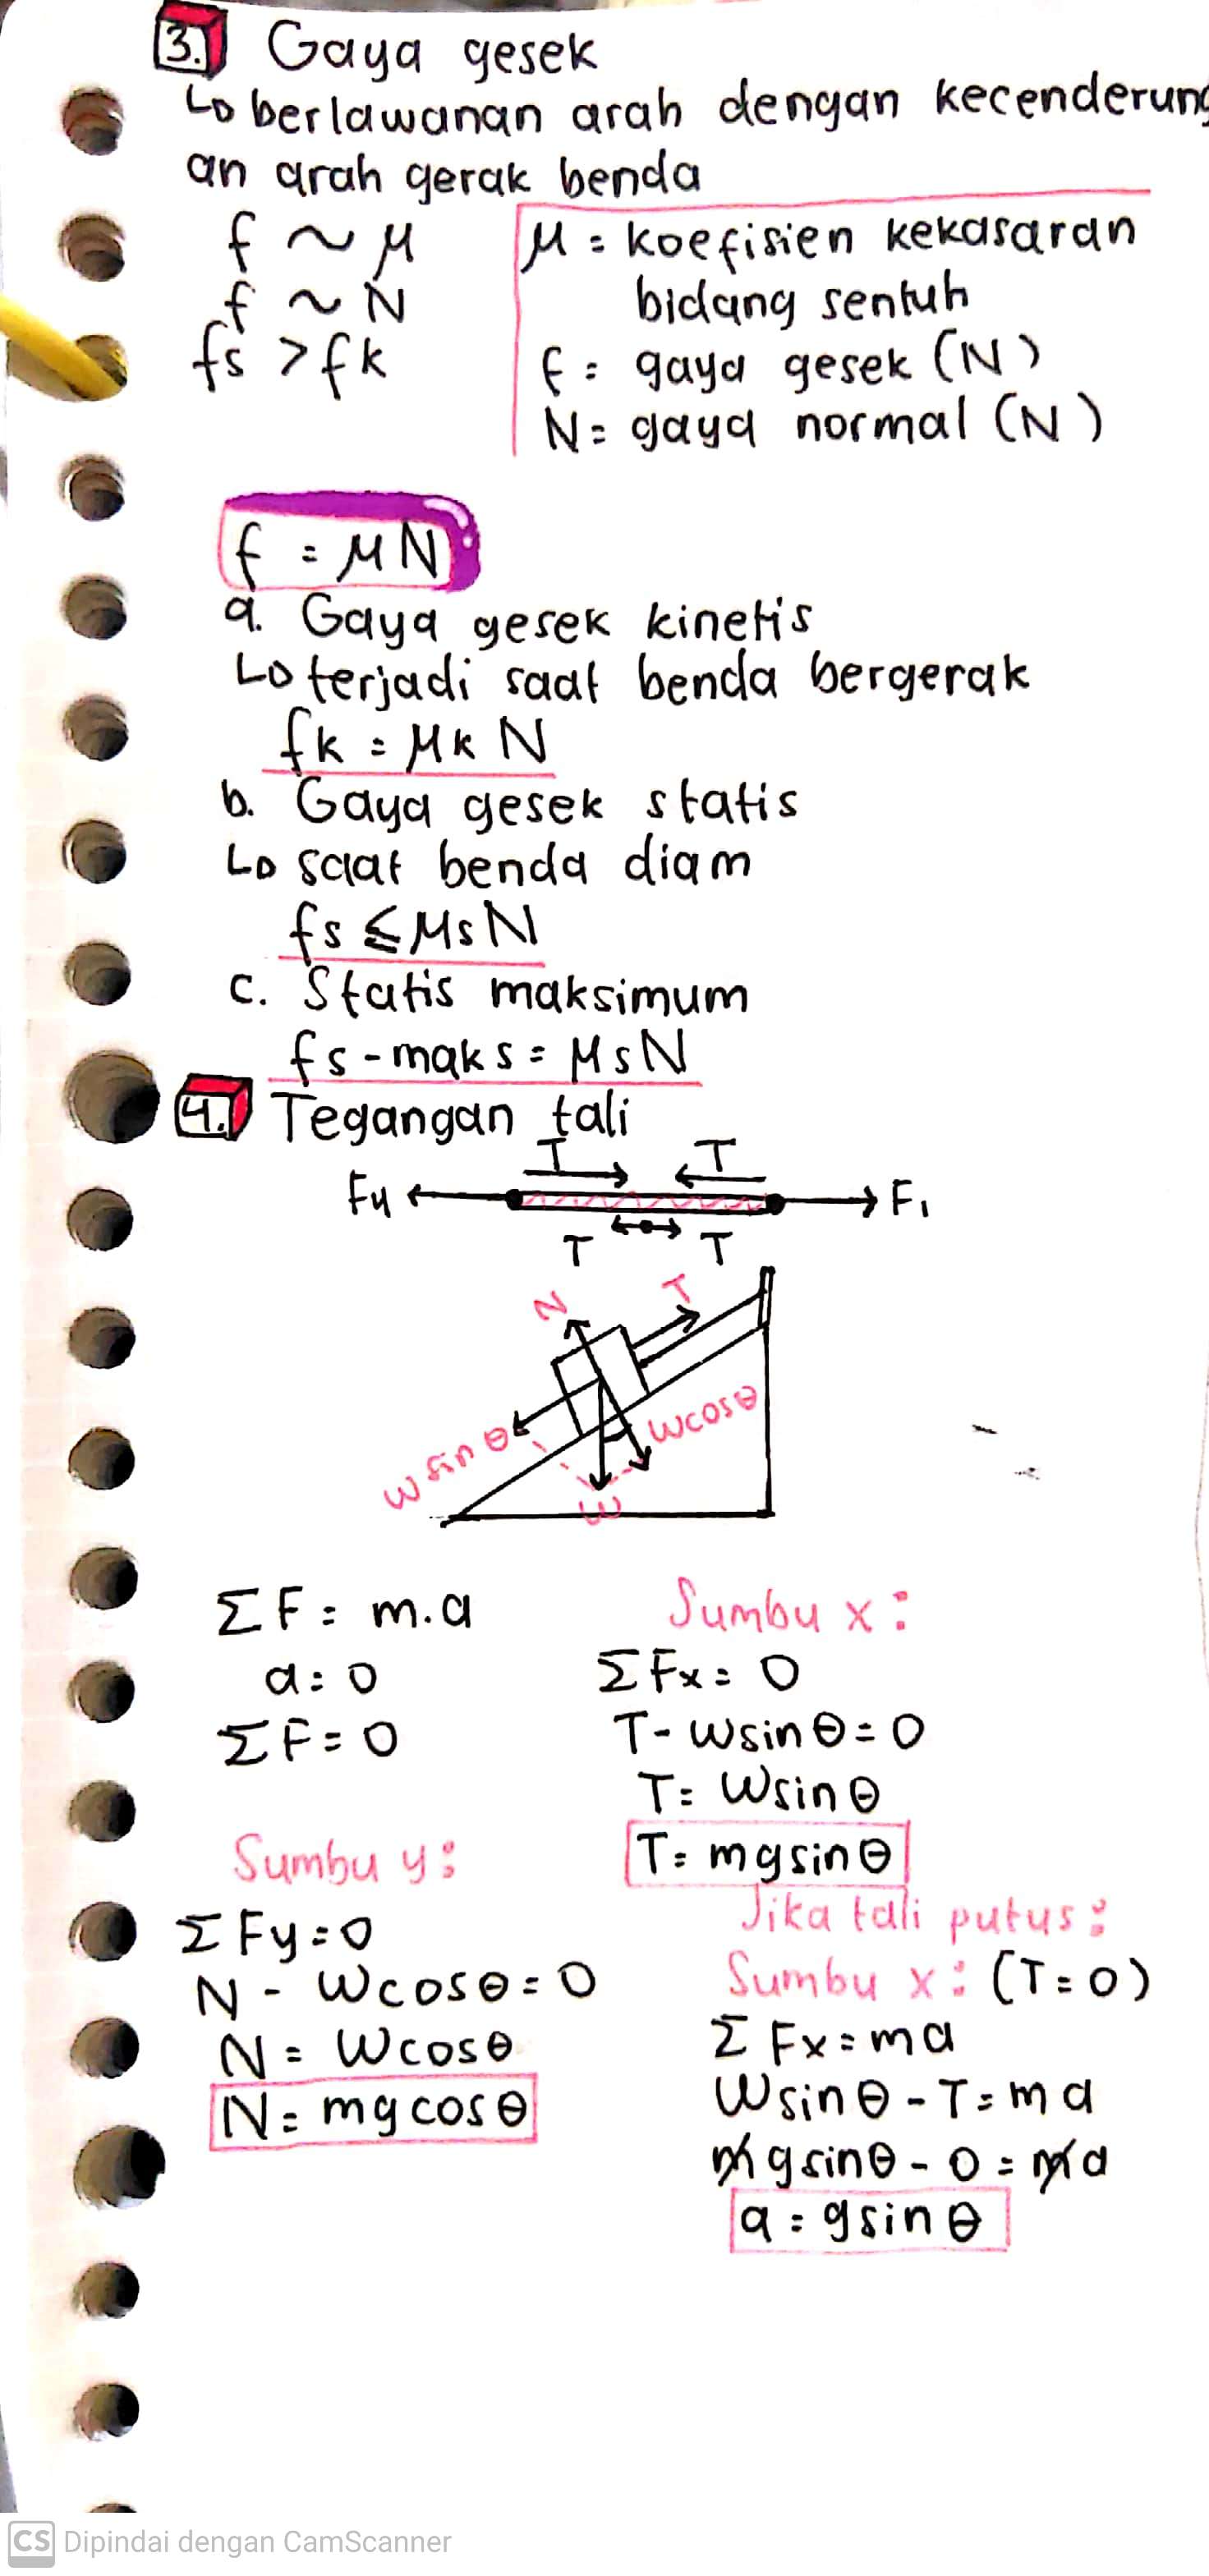 3. Gaya gesek
↳ berlawanan arah dengan kecenderung
an arah gerak benda
f ~ μ
f ~ N
fs > fk
μ = koefisien kekasaran
bidang sentuh
f = gaya gesek (N)
N = gaya normal (N)
f = μN
a. Gaya gesek kinetis
↳ terjadi saat benda bergerak
fk = μk N
b. Gaya gesek statis
↳ saat benda diam
fs ≤ μs N
c. Statis maksimum
fs-maks = μs N
4. Tegangan tali
T T
F4 F1
T T
N T
w sin θ wcosθ
w
ΣF = m.a
a = 0
ΣF = 0
Sumbu x :
ΣFx = 0
T - wsinθ = 0
T = Wsinθ
T = mgsinθ
Sumbu y :
ΣFy = 0
N - Wcosθ = 0
N = Wcosθ
N = mgcosθ
Jika tali putus :
Sumbu x : (T = 0)
ΣFx = ma
Wsinθ - T = ma
mgsinθ - 0 = ma
a = gsinθ
CS Dipindai dengan CamScanner